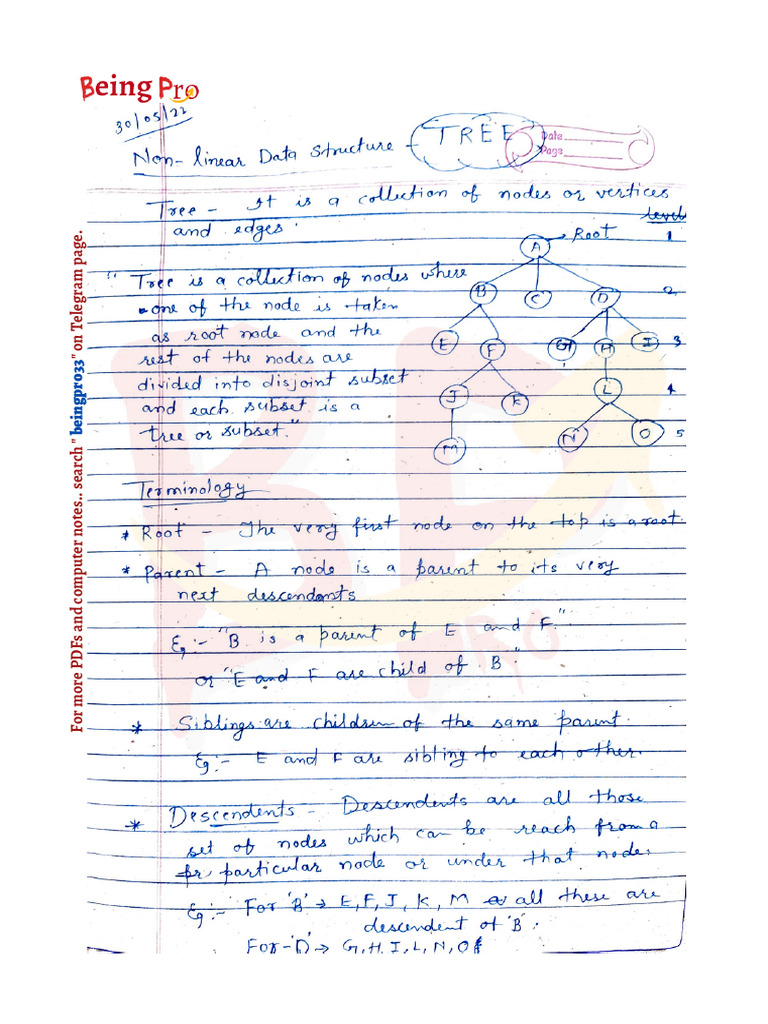 Being Pro
30/05/22
Non-linear Data Structure - TREE
Date
Page
Tree - It is a collection of nodes or vertices
and edges.
level
A → Root 1
"Tree is a collection of nodes where
one of the node is taken
as root node and the
rest of the nodes are
divided into disjoint subset
and each subset is a
tree or subset."
B C D 2
E F G H I 3
J K L 4
M N O 5
Terminology
* Root - The very first node on the top is a root.
* Parent - A node is a parent to its very
next descendents
Eg:- "B is a parent of E and F."
or "E and F are child of B."
* Siblings are children of the same parent.
Eg:- E and F are sibling to each other.
* Descendents - Descendents are all those
set of nodes which can be reach from a
pr particular node or under that node.
Eg:- For 'B' → E, F, J, K, M all these are
descendent of 'B'.
For 'D' → G, H, I, L, N, O
For more PDFs and computer notes.. search " beingpro33" on Telegram page.
BP
PRO